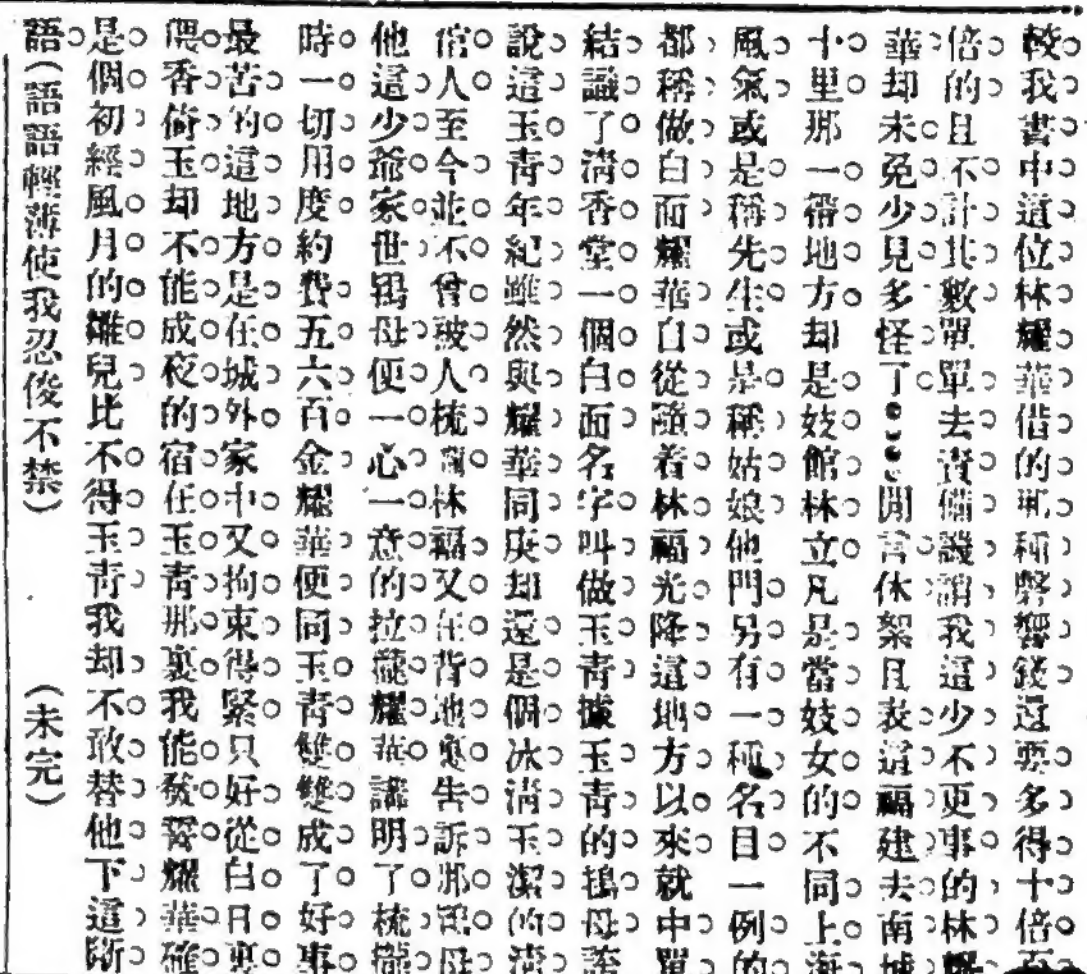 較我書中這位林耀華借的那種弊響錢还要多得十倍百
倍的且不計其數單單去責備譏誚我這少不更事的林耀
華却未免少見多怪了●●●閒言休絮且表這福建去南城
十里那一帶地方却是妓館林立凡是當妓女的不同上海
風氣或是稱先生或是稱姑娘他門另有一種名目一例的
都稱做白面耀華自從隨着林福光降這地方以來就中單
結識了淸香堂一個白面名字叫做玉靑據玉靑的鴇母誇
說這玉靑年紀雖然與耀華同庚却還是個冰淸玉潔的淸
倌人至今並不曾被人梳櫳林福又在背地裏告訴那鴇母
他這少爺家世鴇母便一心一意的拉攏耀華講明了梳櫳
時一切用度約費五六百金耀華便同玉靑雙雙成了好事
最苦的這地方是在城外家中又拘束得緊只好從白日裏
偎香倚玉却不能成夜的宿在玉靑那裏我能發誓耀華確
是個初經風月的雛兒比不得玉靑我却不敢替他下這斷
語(語語輕薄使我忍俊不禁) (未完)